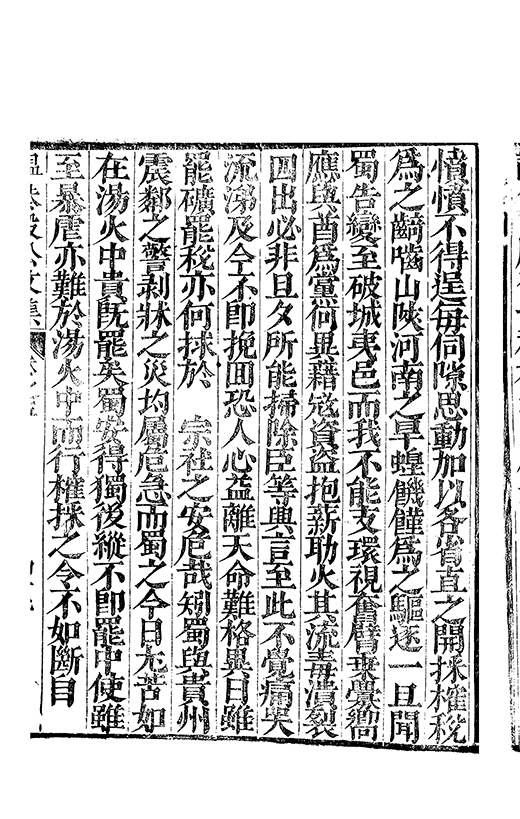 憤憤不得逞毎伺隙思動加以各省直之開採榷稅
為之齮嚙山陜河南之旱蝗饑饉為之驅逐一旦聞
蜀告變至破城夷邑而我不能支環視奮臂棗嚮
應與酋為黨何異藉宼資盗抱薪助火其流毒潰裂
四出必非旦夕所能掃除臣等興言至此不覺痛哭
流涕及今不卽挽囬恐人心益離天命難格異日雖
罷礦罷稅亦何捄於　宗社之安危哉矧蜀與貴州
震鄰之警剥牀之災均屬危急而蜀之今日尤苦如
在湯火中貴旣罷矣蜀安得獨後縱不卽罷中使雖
至暴虐亦難於湯火中而行榷採之令不如斷目
溫恭毅公文集